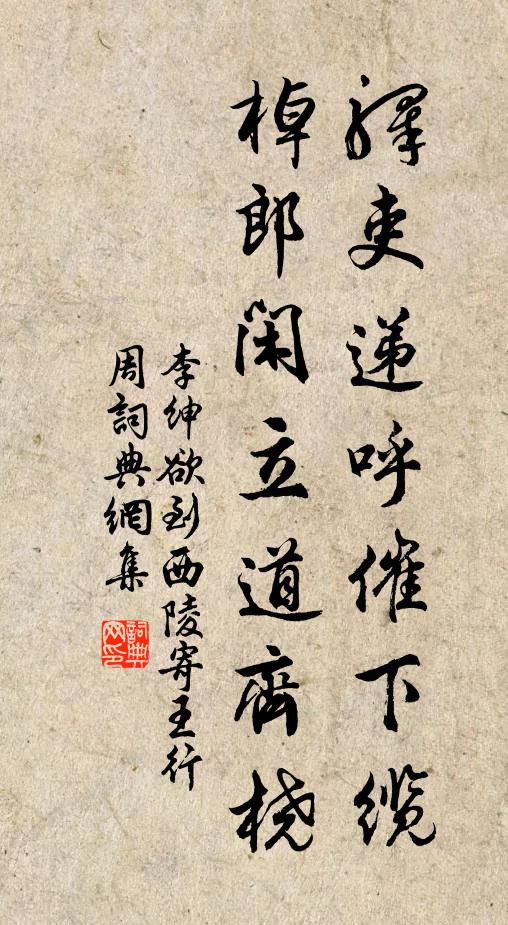 驛吏递呼催下纜
棹郎閑立道齊橈
李紳欲到西陵寄王行
周詞典網集
詞典
网印